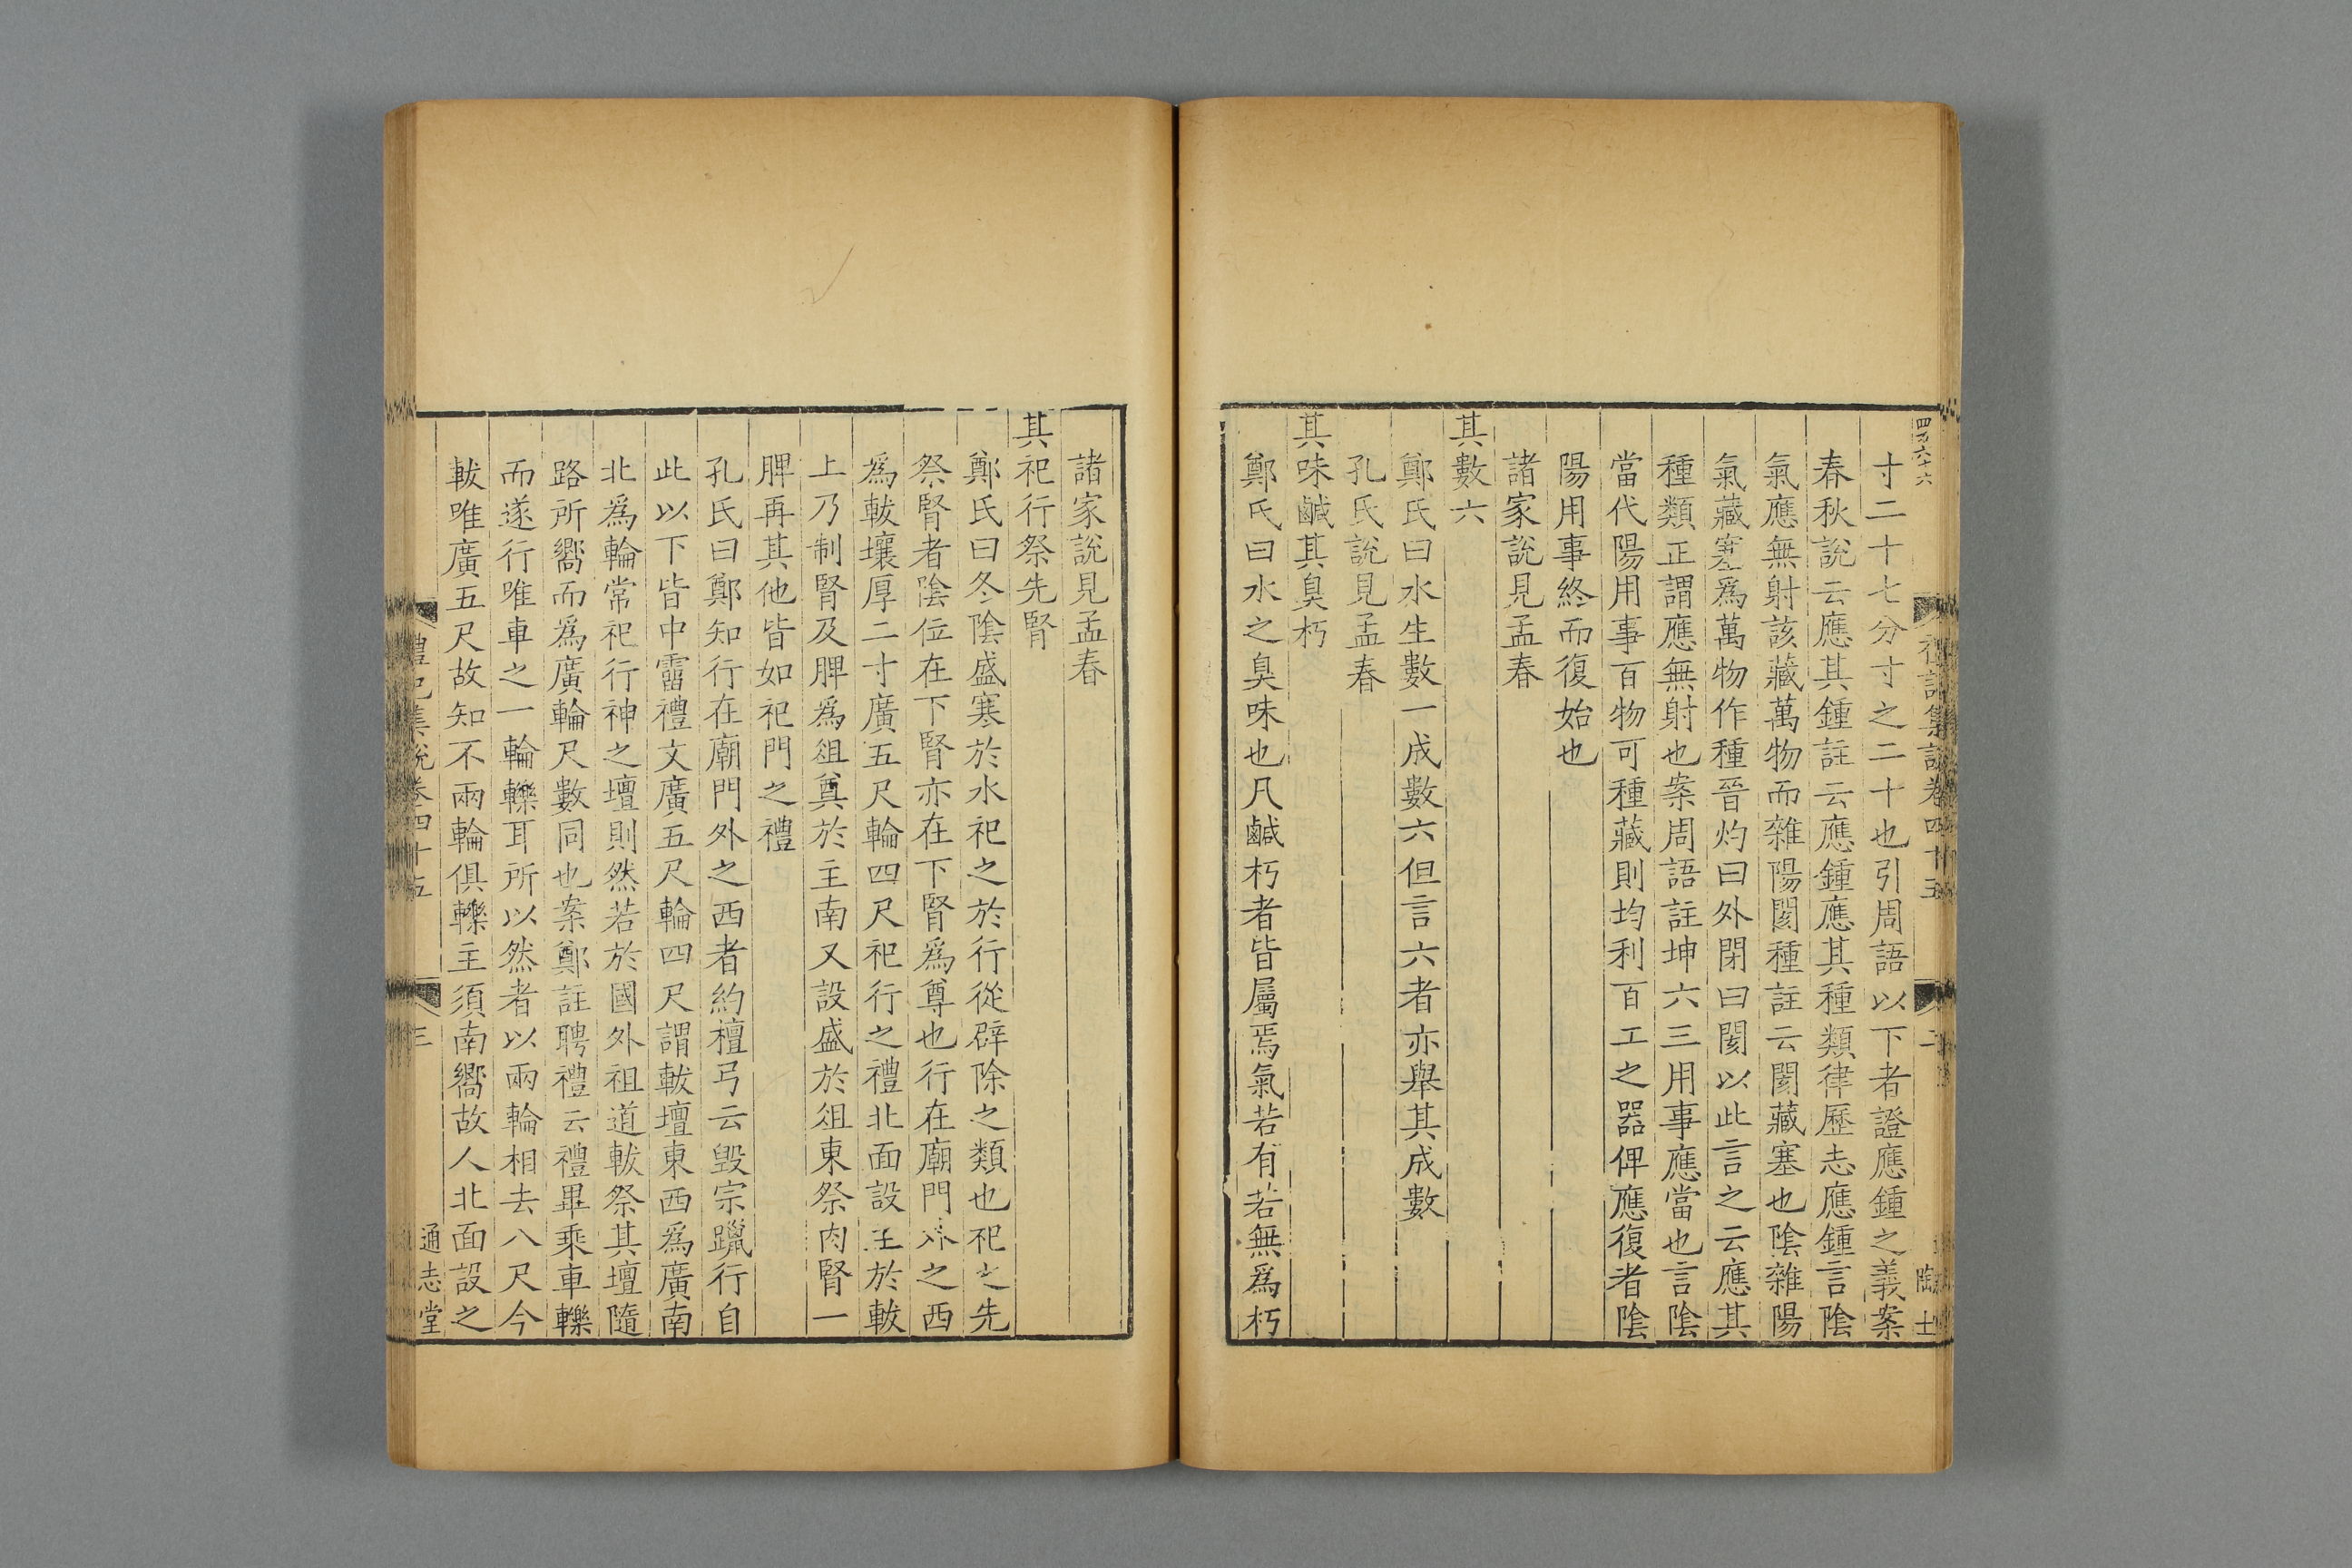 四百六十六
禮記集說卷四十五
二
陶士
寸二十七分寸之二十也引周語以下者證應鍾之義案
春秋說云應其鍾註云應鍾應其種類律歷志應鍾言陰
氣應無射該藏萬物而雜陽閡種註云閡藏塞也陰雜陽
氣藏塞爲萬物作種晉灼曰外閉曰閡以此言之云應其
種類正謂應無射也案周語註坤六三用事應當也言陰
當代陽用事百物可種藏則均利百工之器俾應復者陰
陽用事終而復始也
諸家說見孟春
其數六
鄭氏曰水生數一成數六但言六者亦舉其成數
孔氏說見孟春
其味鹹其臭朽
鄭氏曰水之臭味也凡鹹朽者皆屬焉氣若有若無爲朽
諸家說見孟春
其祀行祭先腎
鄭氏曰冬陰盛寒於水祀之於行從辟除之類也祀之先
祭腎者陰位在下腎亦在下腎爲尊也行在廟門外之西
爲軷壤厚二寸廣五尺輪四尺祀行之禮北面設主於軷
上乃制腎及脾爲俎奠於主南又設盛於俎東祭肉腎一
脾再其他皆如祀門之禮
孔氏曰鄭知行在廟門外之西者約檀弓云毀宗躐行自
此以下皆中霤禮文廣五尺輪四尺謂軷壇東西爲廣南
北爲輪常祀行神之壇則然若於國外祖道軷祭其壇隨
路所嚮而爲廣輪尺數同也案鄭註聘禮云禮畢乘車轢
而遂行唯車之一輪轢耳所以然者以兩輪相去八尺今
軷唯廣五尺故知不兩輪俱轢主須南嚮故人北面設之
禮記集說卷四十五
三
通志堂